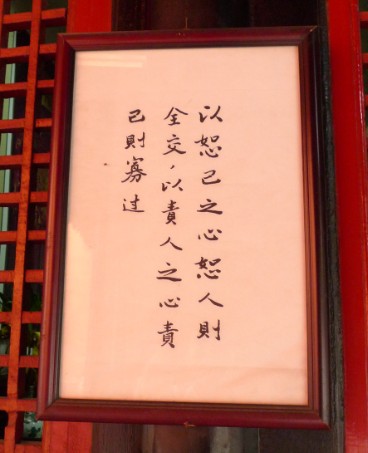 以恕己之心恕人則
全交，以責人之心責
己則寡过